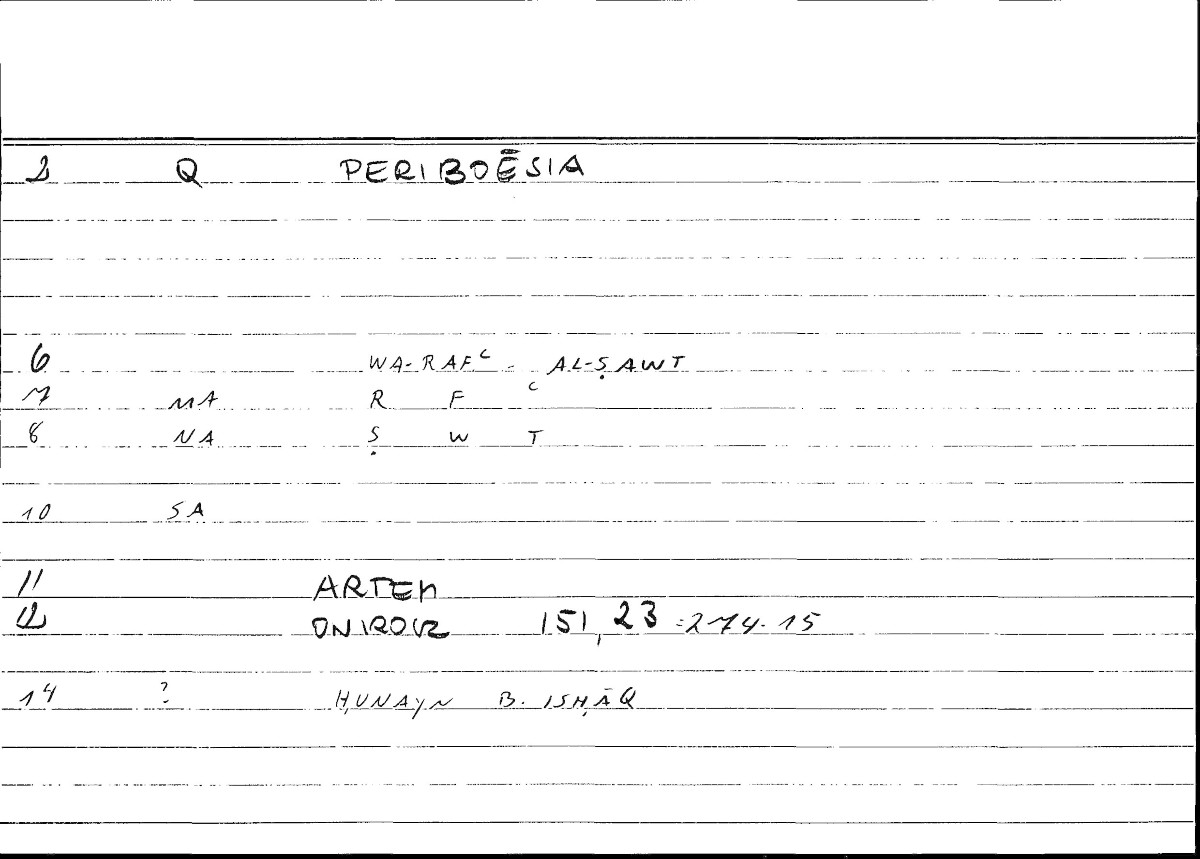 2 Q PERIBOĒSIA
6 WA-RAFᶜ - AL-ṢAWT
7 MA R F ᶜ
8 NA Ṣ W T
10 SA
11 ARTEM
12 ONIROCR 151,23 =274.15
14 ? ḤUNAYN B. ISḤĀQ